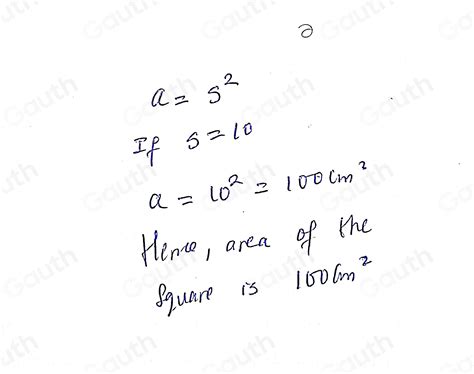 a = s²
If s = 10
a = 10² = 100 cm²
Hence, area of the
Square is 100 cm²